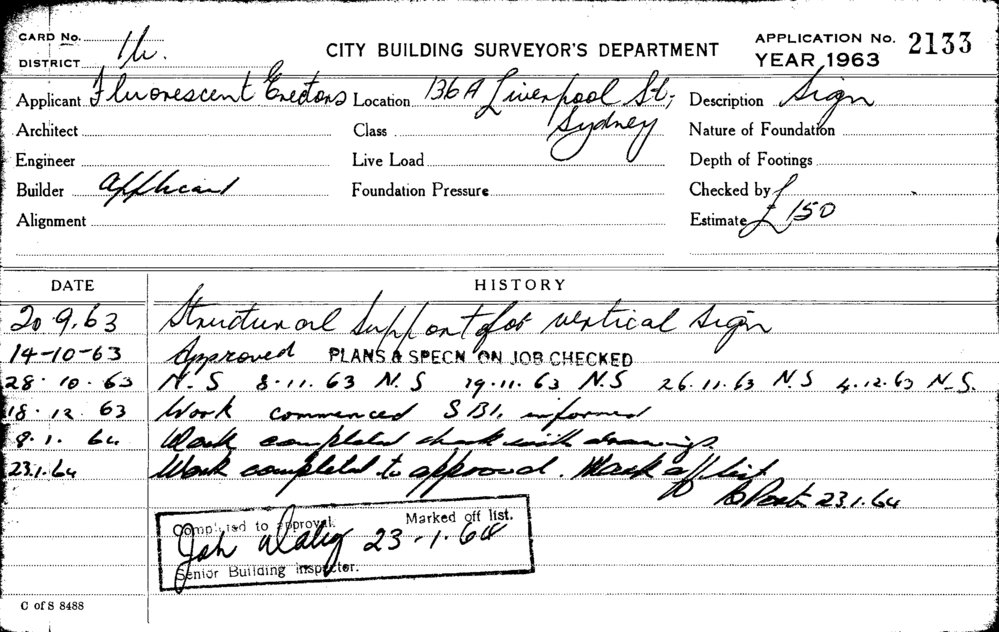 CARD No.
CITY BUILDING SURVEYOR'S DEPARTMENT
APPLICATION No. 2133
DISTRICT
YEAR 1963
Applicant Fluorescent Erectors Location 136A Liverpool St; Description Sign
Sydney
Architect Class Nature of Foundation
Engineer Live Load Depth of Footings
Builder applicant Foundation Pressure Checked by
Alignment Estimate £150
DATE HISTORY
20.9.63 Structural support for vertical sign
14-10-63 Approved PLANS & SPECN ON JOB CHECKED
28.10.63 N.S 8.11.63 N.S 19.11.63 N.S 26.11.63 N.S 4.12.63 N.S.
18.12.63 Work commenced SBI, informed
9.1.64 Work completed check with drawings
23.1.64 Work completed to approval. Mark off list
23.1.64
Completed to approval. Marked off list.
23-1-64
Senior Building inspector.
C of S 8488